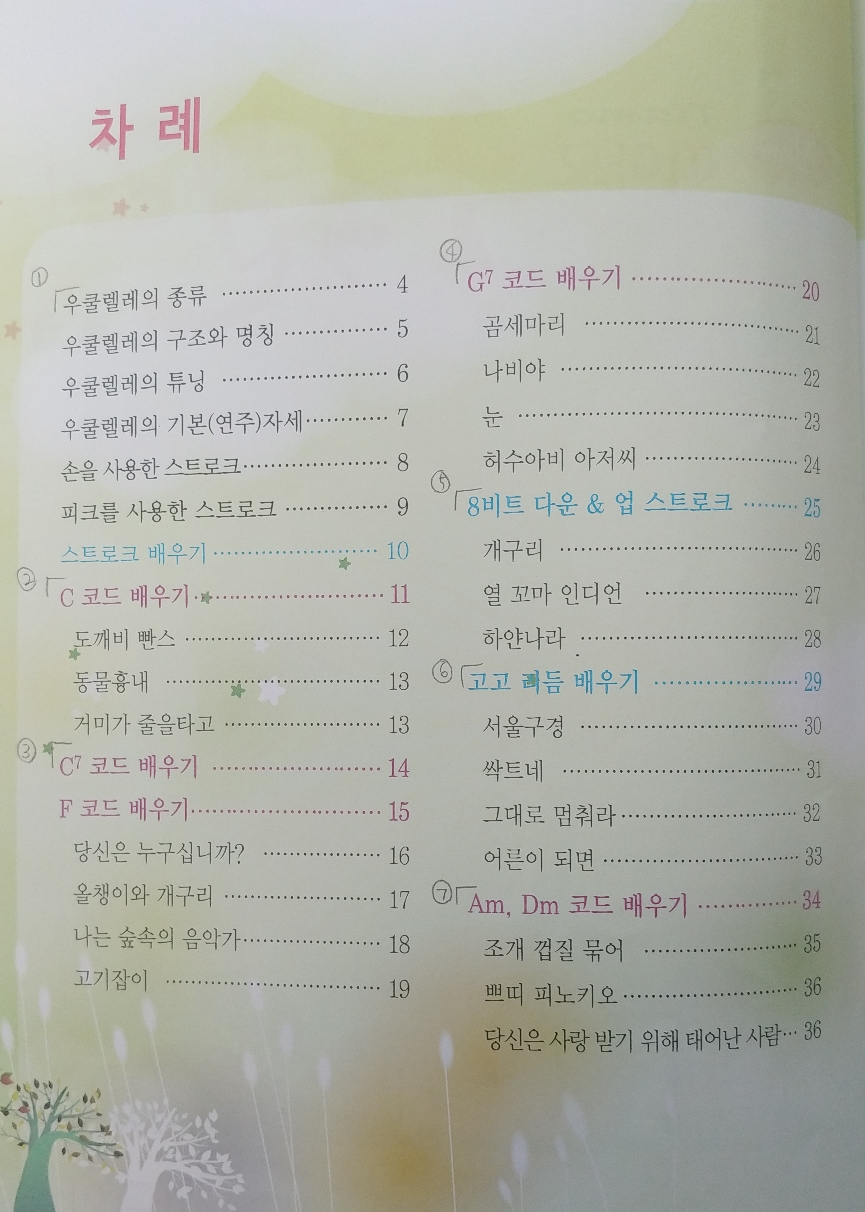 차 례
①
우쿨렐레의 종류 ························ 4
우쿨렐레의 구조와 명칭 ··············· 5
우쿨렐레의 튜닝 ························ 6
우쿨렐레의 기본(연주)자세············ 7
손을 사용한 스트로크····················· 8
피크를 사용한 스트로크 ··············· 9
스트로크 배우기························ 10
②
C 코드 배우기··························· 11
도깨비 빤스 ···························· 12
동물흉내 ································ 13
거미가 줄을타고 ······················· 13
③
C7 코드 배우기 ························ 14
F 코드 배우기··························· 15
당신은 누구십니까? ·················· 16
올챙이와 개구리 ······················· 17
나는 숲속의 음악가···················· 18
고기잡이 ································ 19
④
G7 코드 배우기 ························ 20
곰세마리 ································ 21
나비야 ··································· 22
눈 ········································· 23
허수아비 아저씨 ······················· 24
⑤
8비트 다운 & 업 스트로크 ········· 25
개구리 ··································· 26
열 꼬마 인디언 ························ 27
하얀나라 ································ 28
⑥
고고 리듬 배우기 ····················· 29
서울구경 ································ 30
싹트네 ··································· 31
그대로 멈춰라··························· 32
어른이 되면····························· 33
⑦
Am, Dm 코드 배우기 ··············· 34
조개 껍질 묶어 ························ 35
쁘띠 피노키오··························· 36
당신은 사랑 받기 위해 태어난 사람··· 36